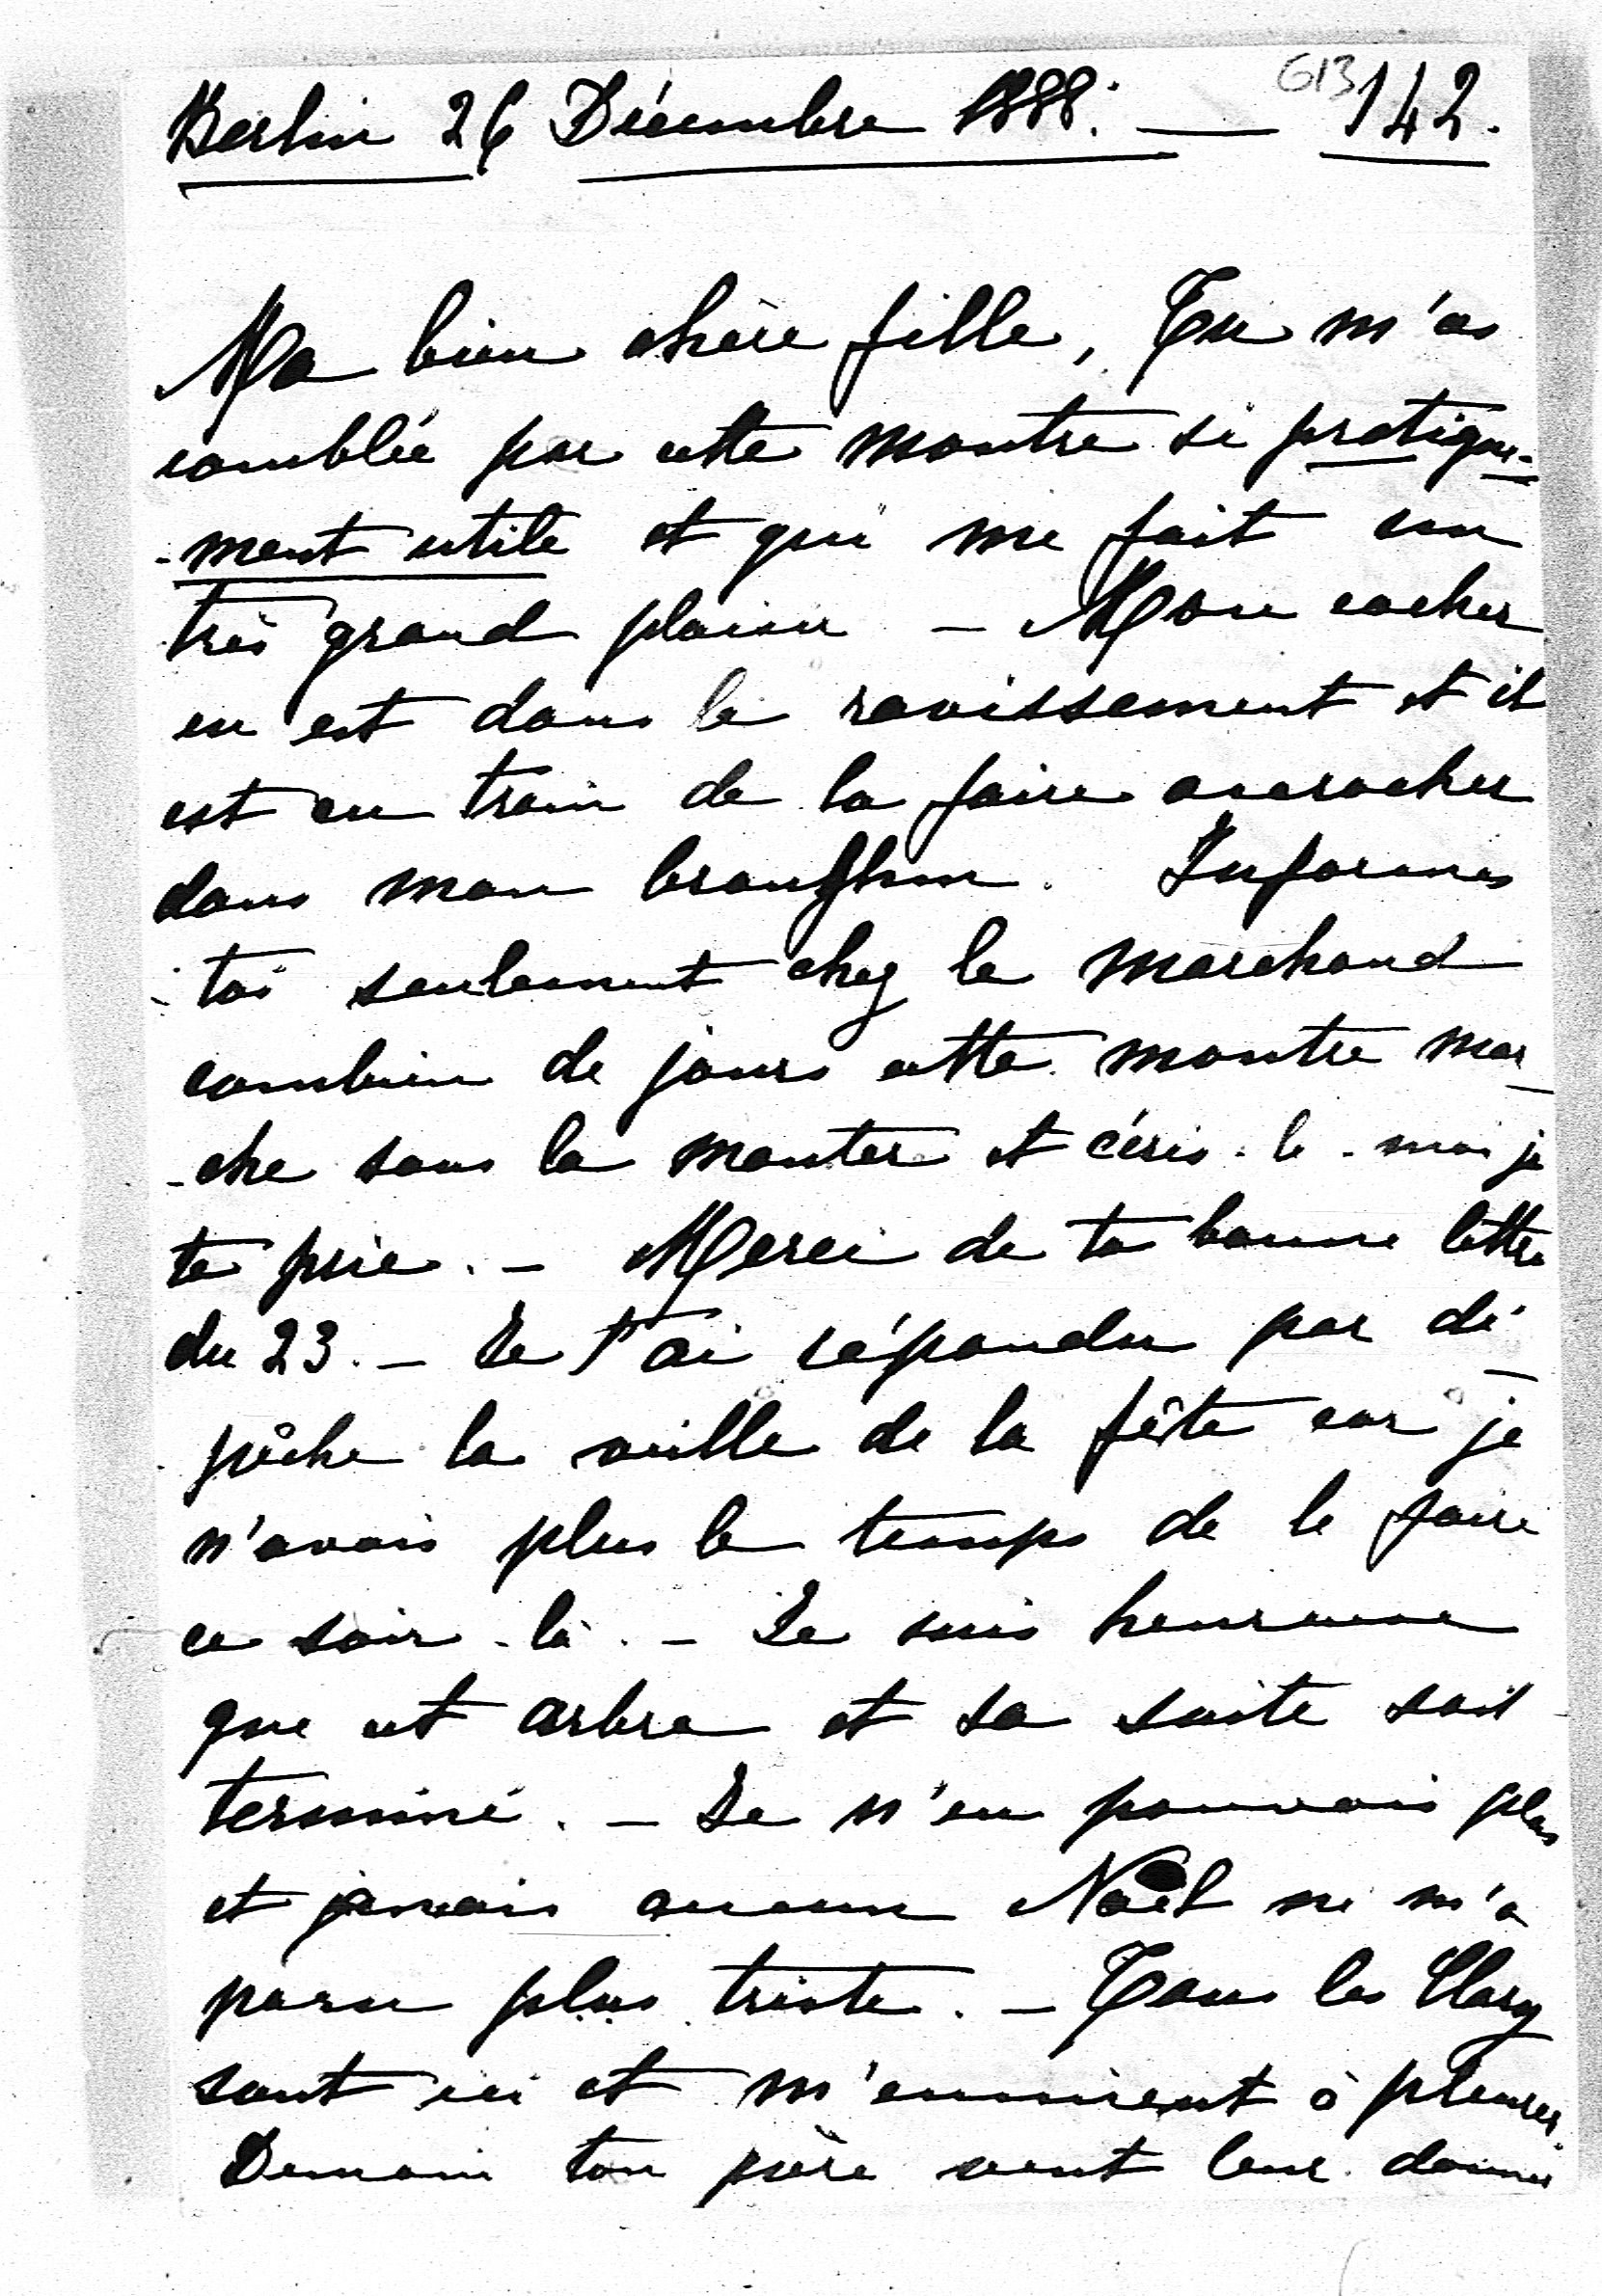 Berlin 26 Décembre 1888. — 613 142.
Ma bien chère fille, Tu m'as
comblée par cette montre si pratique-
-ment utile et qui me fait un
très grand plaisir – Mon cocher
en est dans le ravissement et il
est en train de la faire accrocher
dans mon brougham. Informes
-toi seulement chez le marchand
combien de jours cette montre mar-
-che sans la monter et écris-le-moi je
te prie. – Merci de ta bonne lettre
du 23. – Je t'ai répondu par dé-
pêche la veille de la fête car je
n'avais plus le temps de le faire
ce soir-là. – Je suis heureuse
que cet arbre et sa suite soit
terminé. – Je n'en pouvais plus
et jamais aucun Noël ne m'a
paru plus triste. – Tous les Clary
sont ici et m'ennuient à pleurer.
Demain ton père veut leur donner